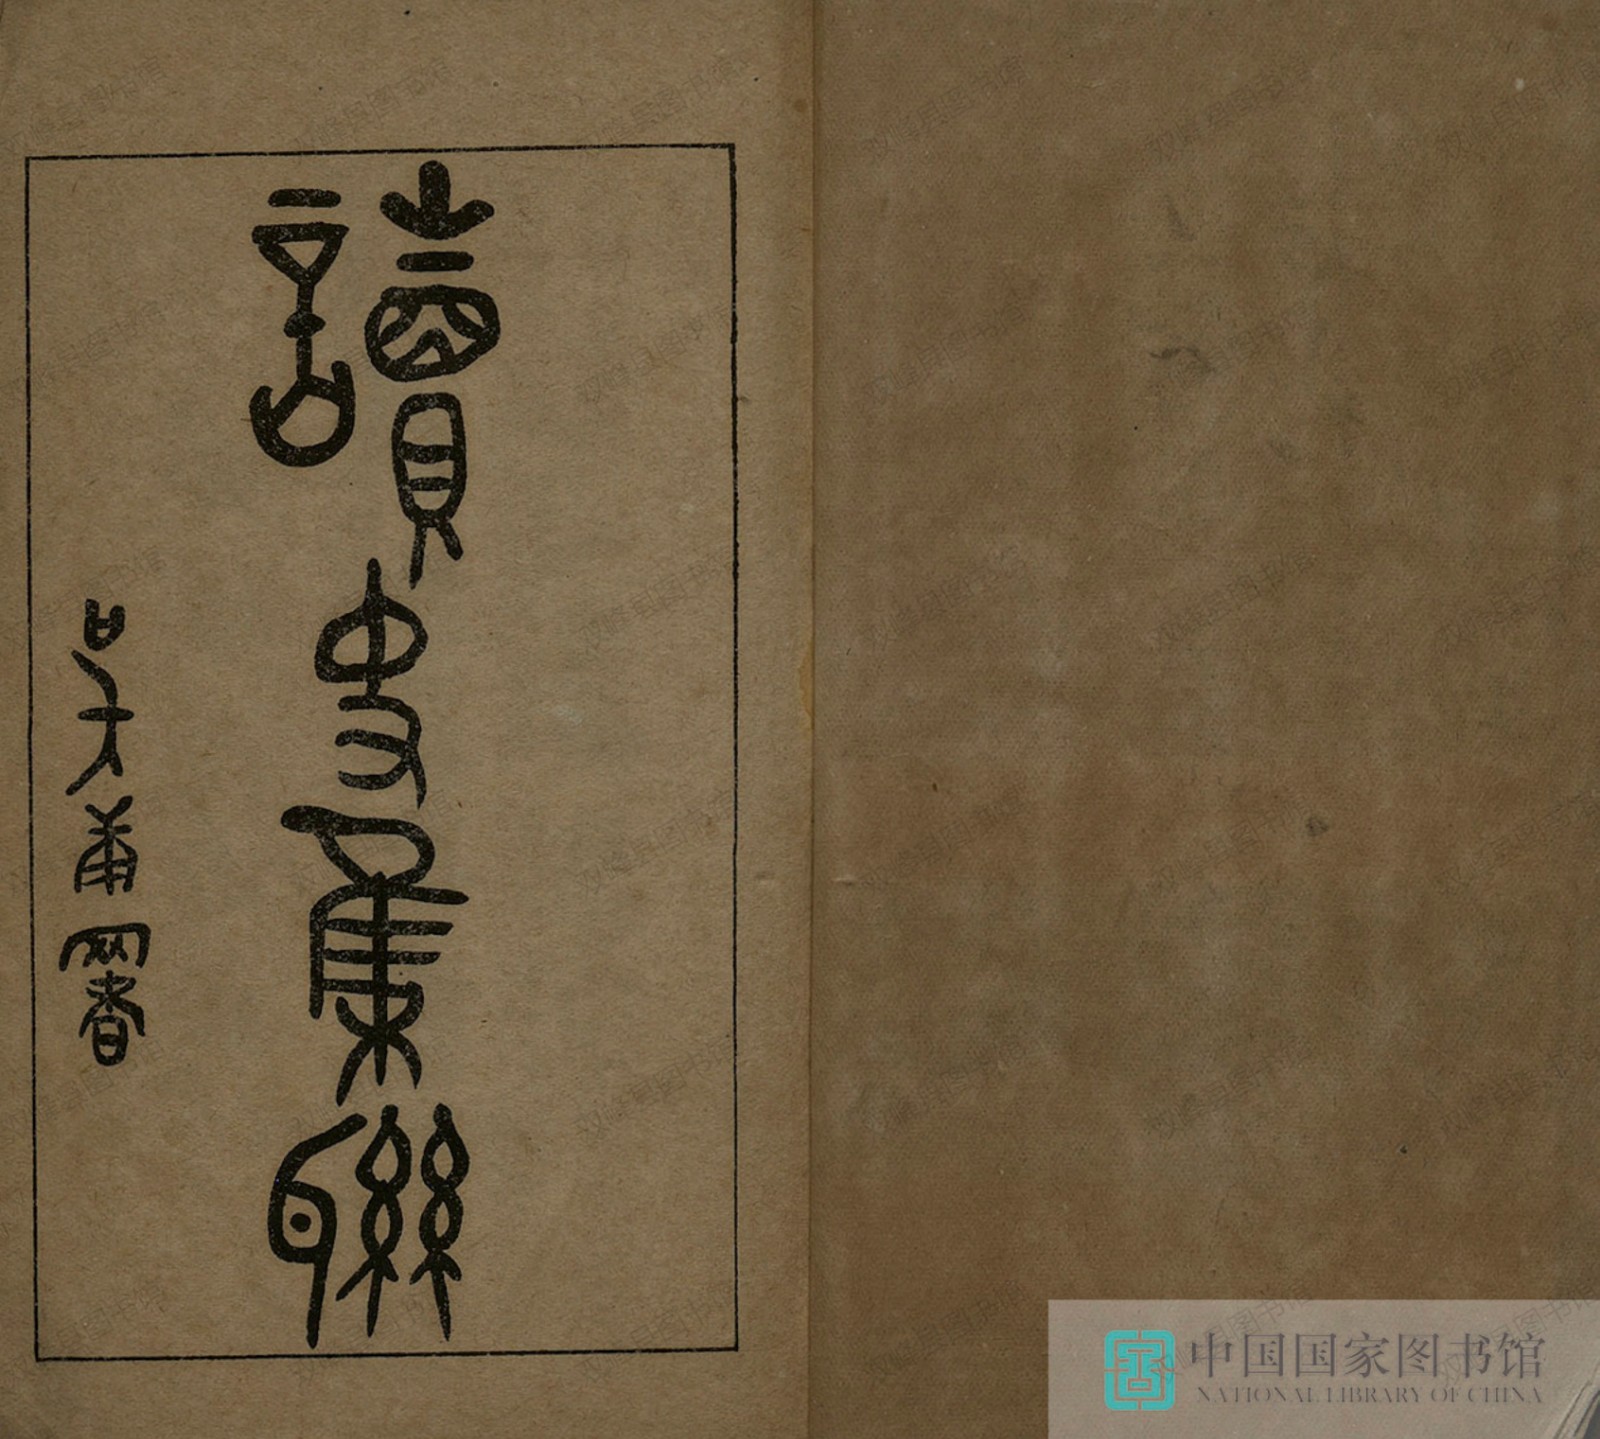 讀史集聯
吳芾署
中国国家图书馆
NATIONAL LIBRARY OF CHINA